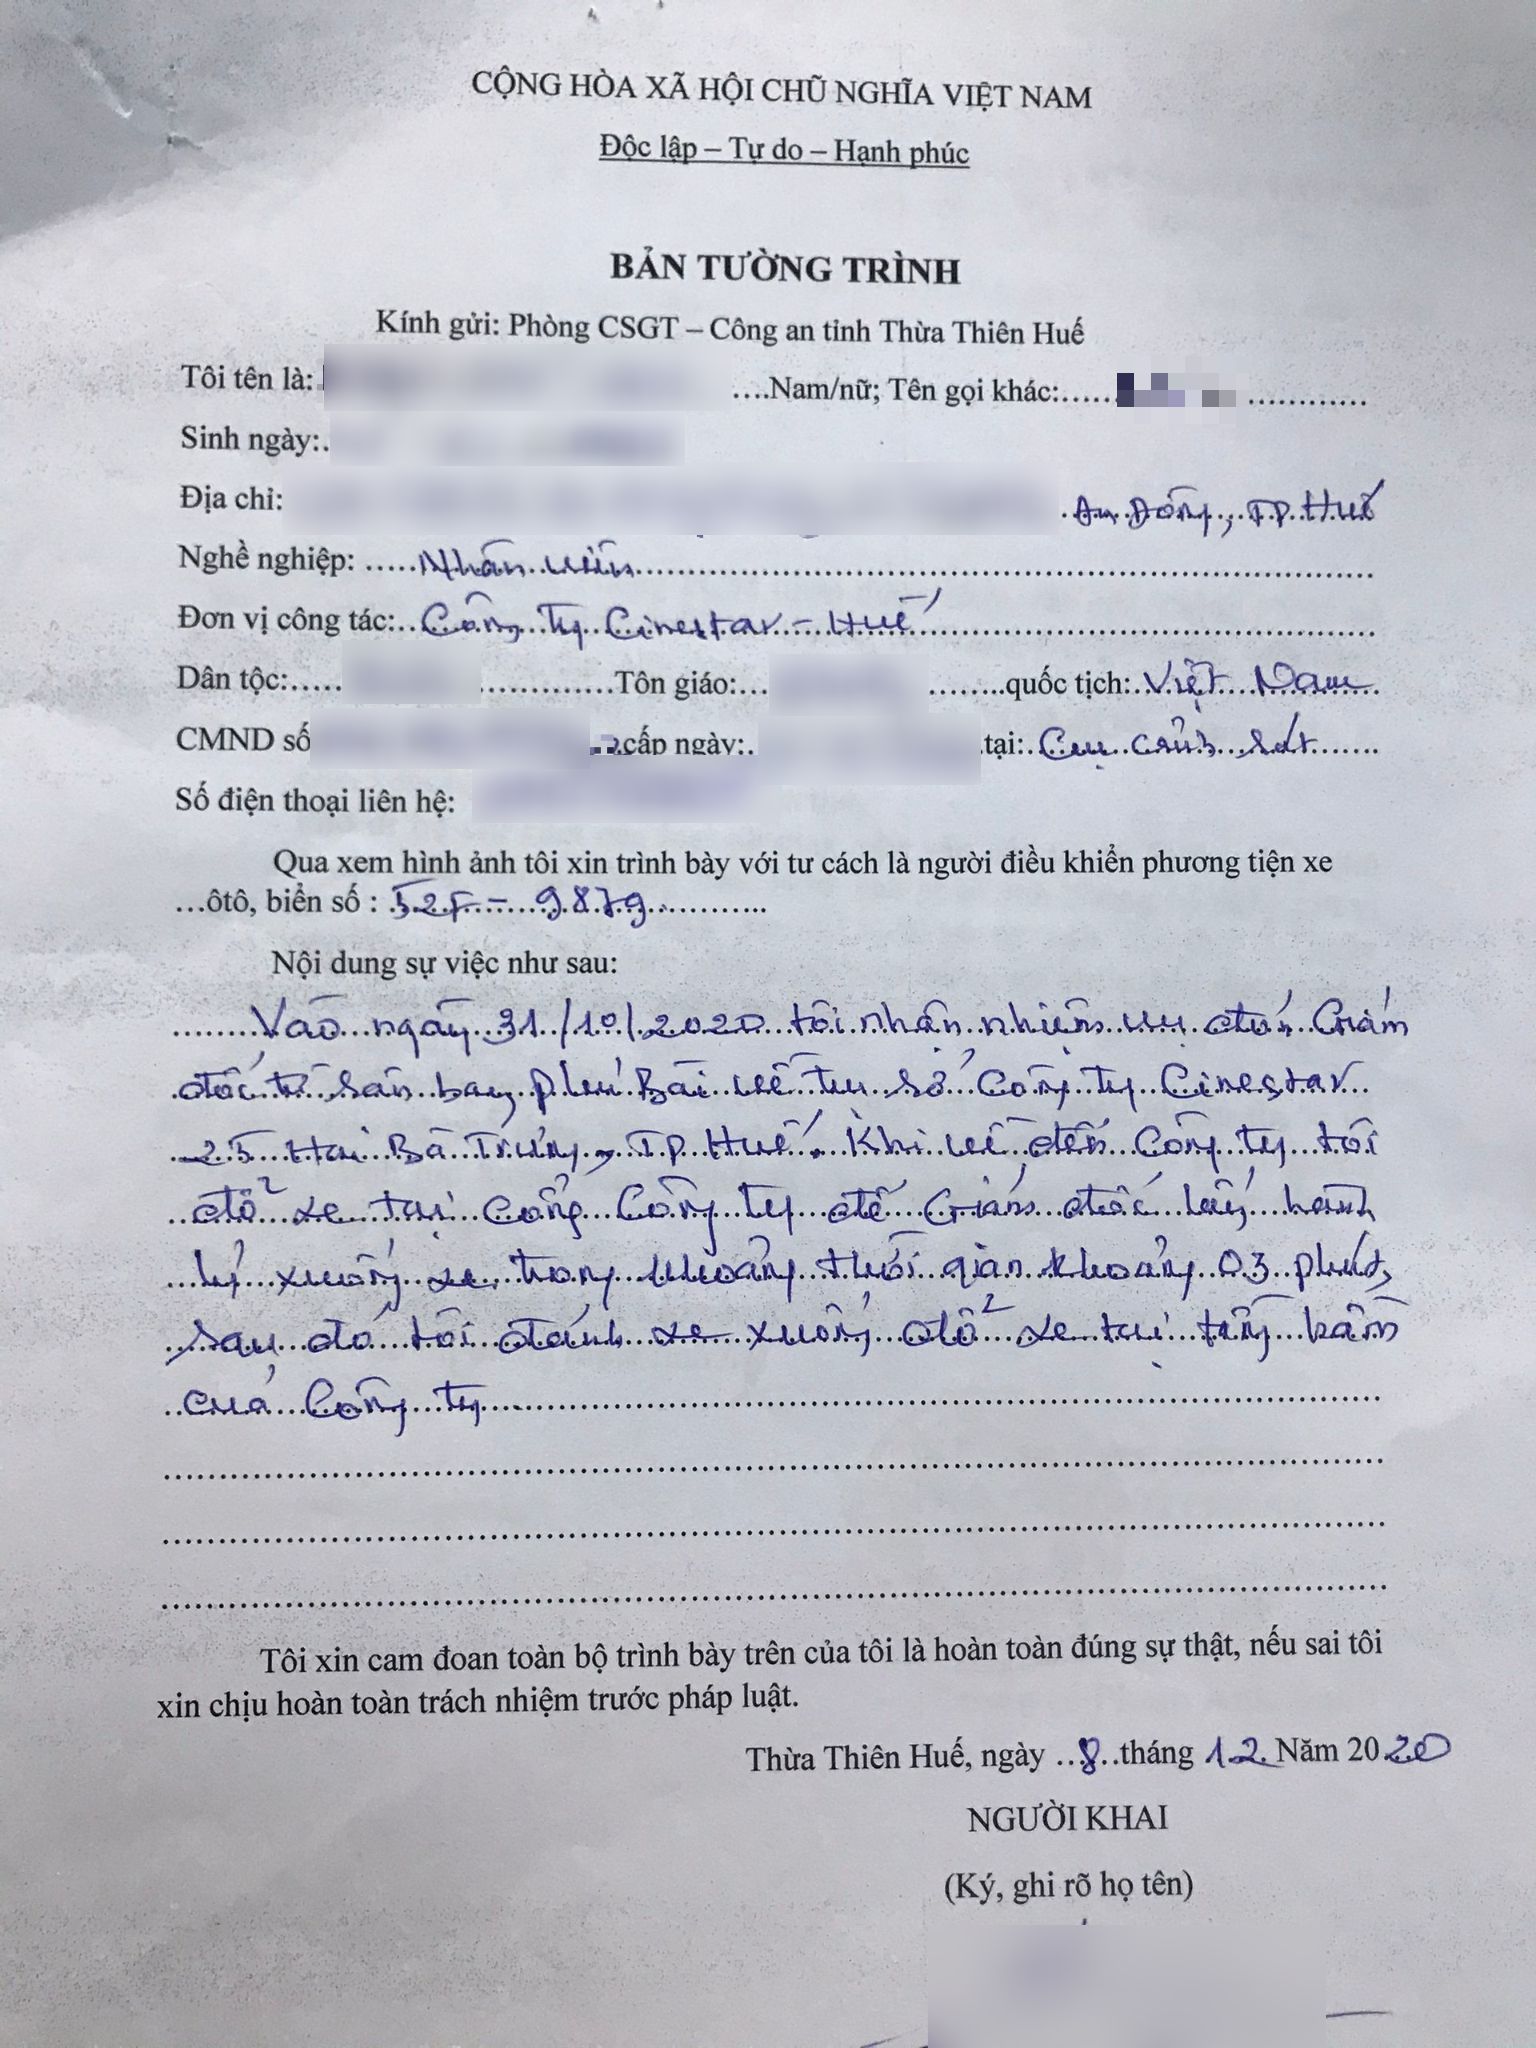 CỘNG HÒA XÃ HỘI CHŨ NGHĨA VIỆT NAM
Độc lập – Tự do – Hạnh phúc
BẢN TƯỜNG TRÌNH
Kính gửi: Phòng CSGT – Công an tỉnh Thừa Thiên Huế
Tôi tên là: ....Nam/nữ; Tên gọi khác:...... ............
Sinh ngày:.
Địa chỉ: An Đông, TP Huế
Nghề nghiệp: .....Nhân viên
Đơn vị công tác:..Công ty Cinestar - Huế
Dân tộc:..... .............Tôn giáo:... ........quốc tịch: Việt Nam
CMND số cấp ngày:. tại: Cục cảnh sát
Số điện thoại liên hệ:
Qua xem hình ảnh tôi xin trình bày với tư cách là người điều khiển phương tiện xe
...ôtô, biển số : 52F - 9879
Nội dung sự việc như sau:
Vào ngày 31/10/2020 tôi nhận nhiệm vụ đón Giám
đốc từ sân bay Phú Bài về trụ sở Công ty Cinestar
25 Hai Bà Trưng, TP Huế. Khi về đến Công ty tôi
đỗ xe tại cổng Công ty để Giám đốc lấy hành
lý xuống xe trong khoảng thời gian khoảng 03 phút,
sau đó tôi đánh xe xuống đỗ xe tại tầng hầm
của Công ty
Tôi xin cam đoan toàn bộ trình bày trên của tôi là hoàn toàn đúng sự thật, nếu sai tôi
xin chịu hoàn toàn trách nhiệm trước pháp luật.
Thừa Thiên Huế, ngày 8 tháng 12 Năm 2020
NGƯỜI KHAI
(Ký, ghi rõ họ tên)